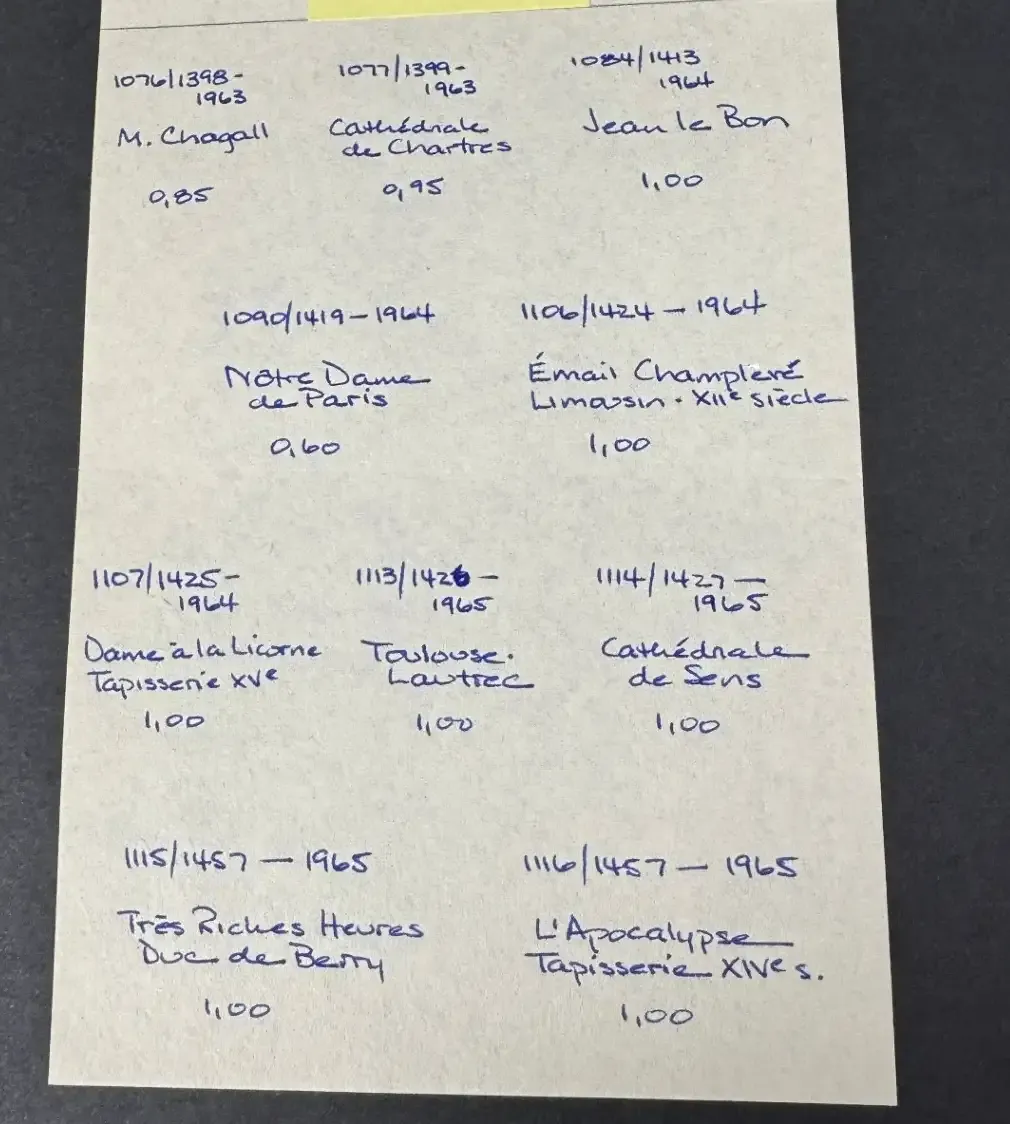 1076/1398-
1963
M. Chagall
0,85
1077/1399-
1963
Cathédrale
de Chartres
0,95
1084/1413
1964
Jean le Bon
1,00
1090/1419-1964
Nôtre Dame
de Paris
0,60
1106/1424 - 1964
Émail Champlevé
Limousin. XIIe siècle
1,00
1107/1425-
1964
Dame à la Licorne
Tapisserie XVe
1,00
1113/1426-
1965
Toulouse.
Lautrec
1,00
1114/1427-
1965
Cathédrale
de Sens
1,00
1115/1457 - 1965
Très Riches Heures
Duc de Berry
1,00
1116/1457 - 1965
L'Apocalypse
Tapisserie XIVe s.
1,00